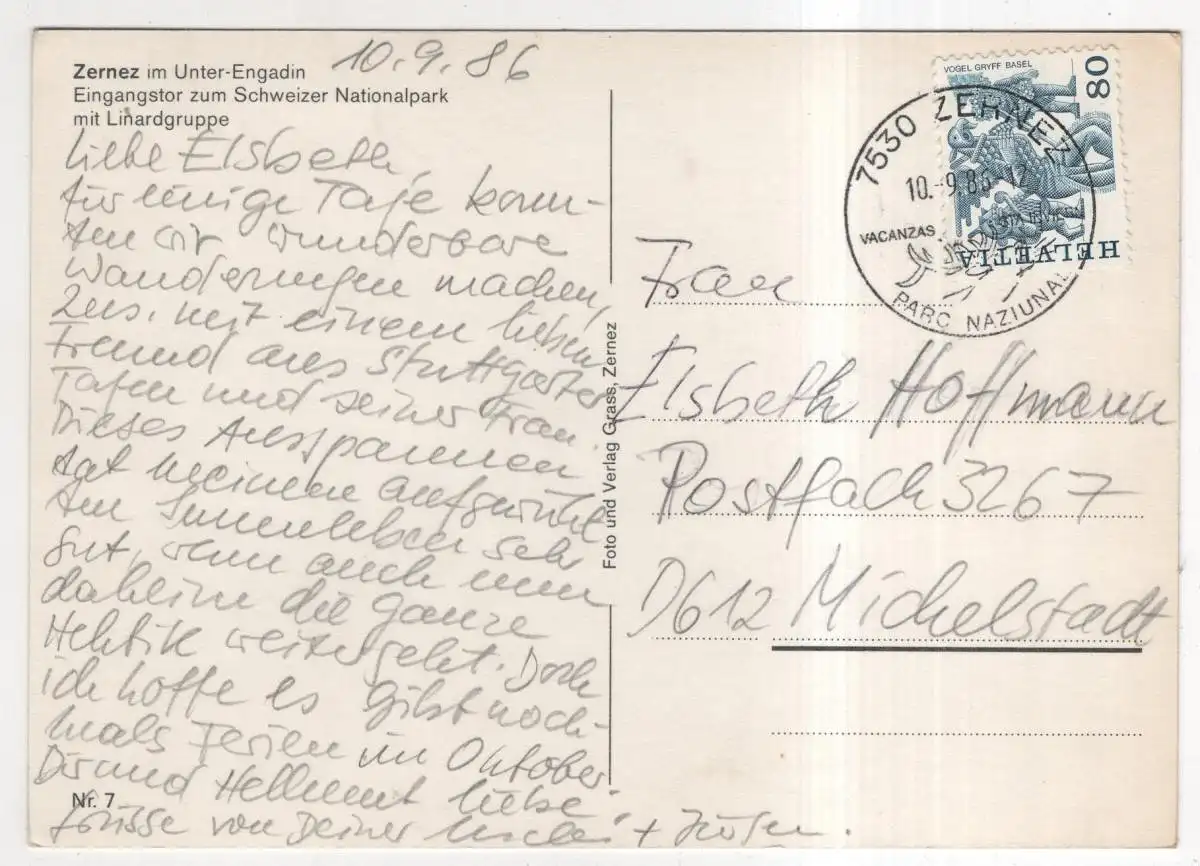 Zernez im Unter-Engadin
Eingangstor zum Schweizer Nationalpark
mit Linardgruppe
10.9.86
Liebe Elsbeth,
für einige Tage konn-
ten wir wunderbare
Wanderungen machen,
zus. mit einem lieben
Freund aus Stuttgarter
Tagen und seiner Frau.
Dieses Ausspannen
tat meinem aufgewühl
ten Innenleben sehr
gut, wenn auch nun
daheim die ganze
Hektik weitergeht. Doch
ich hoffe es gibt noch-
mals Ferien im Oktober.
Dir und Hellmut liebe
Grüsse von Deiner + Jürgen.
Nr. 7
Foto und Verlag Grass, Zernez
VOGEL GRYFF BASEL
80
HELVETIA
7530 ZERNEZ
10.-9.86-12
VACANZAS
PARC NAZIUNAL
Frau
Elsbeth Hoffmann
Postfach 3267
D612 Michelstadt